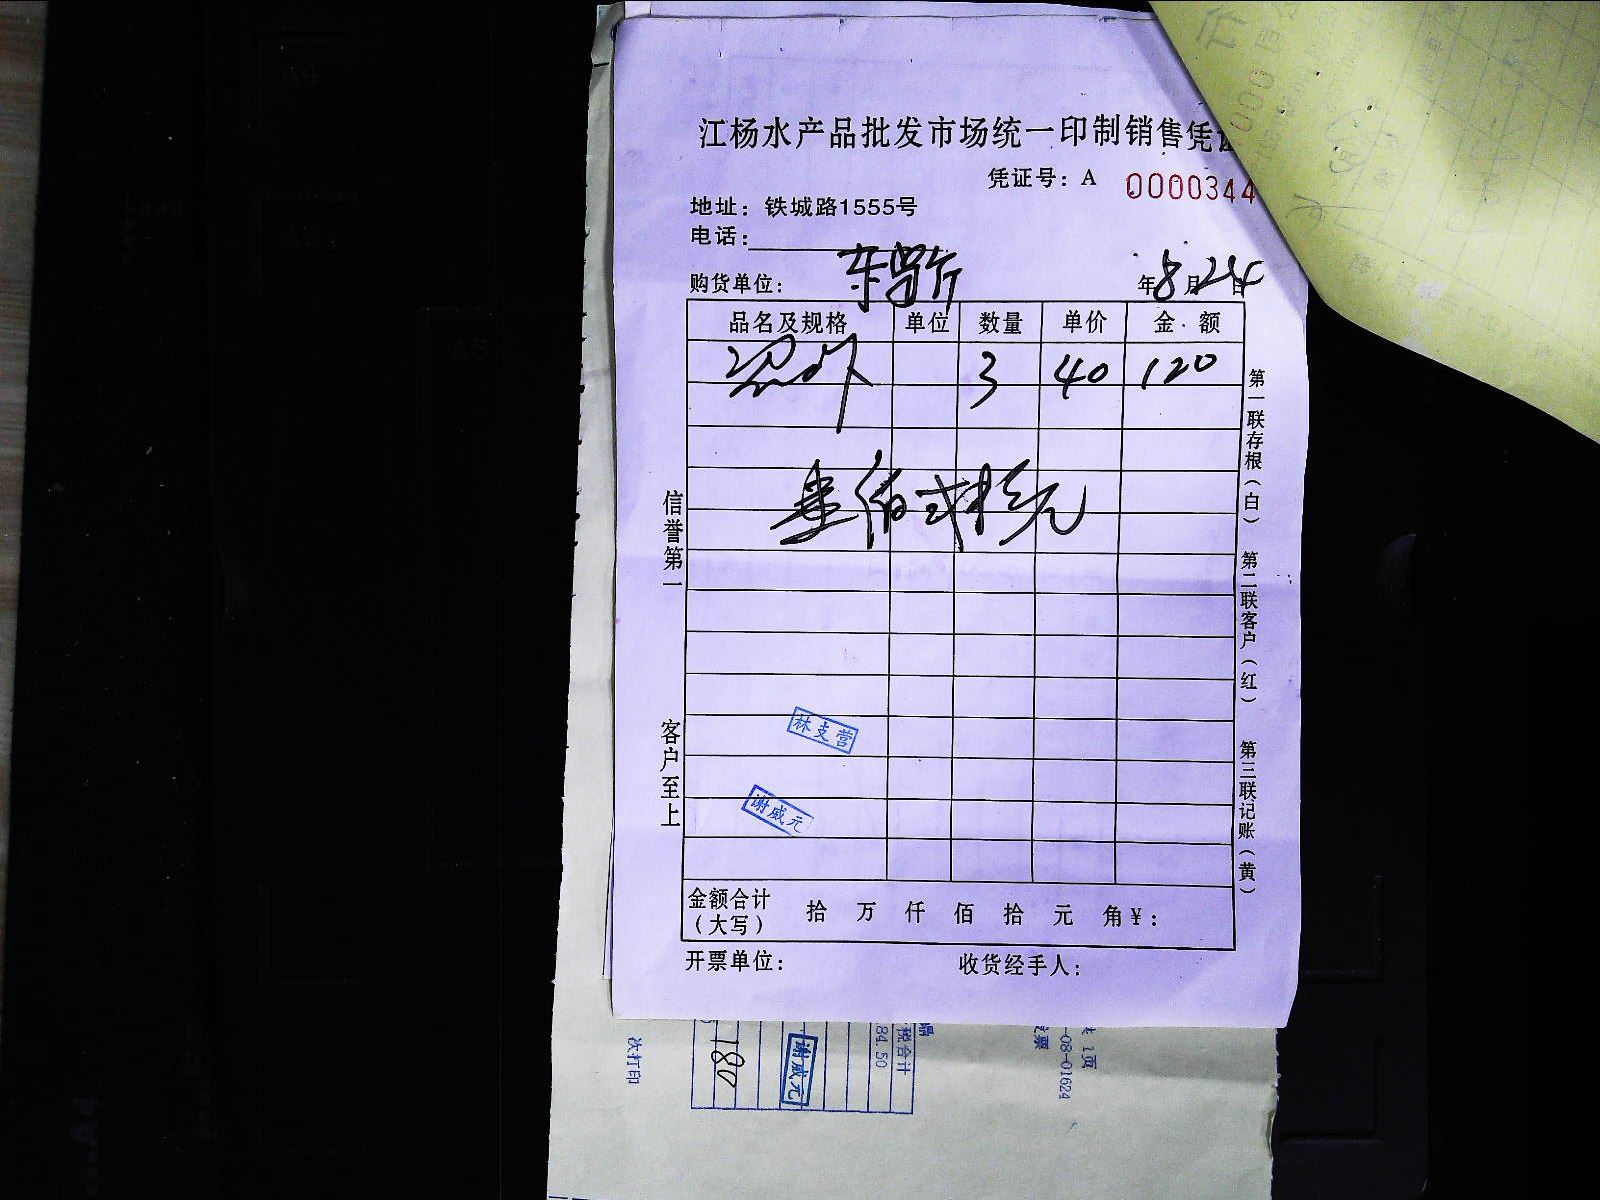 江杨水产品批发市场统一印制销售凭证
凭证号：A 0000344
地址：铁城路1555号
电话：
购货单位：
年8月24日
品名及规格 单位 数量 单价 金·额
3 40 120
壹佰式拾元
信誉第一
客户至上
林支营
谢威元
第一联存根（白） 第二联客户（红） 第三联记账（黄）
金额合计（大写） 拾 万 仟 佰 拾 元 角 ¥：
开票单位： 收货经手人：
次打印
180
谢威元
84.50
税合计
-08-01624
1页
A4
A5
A6
A4